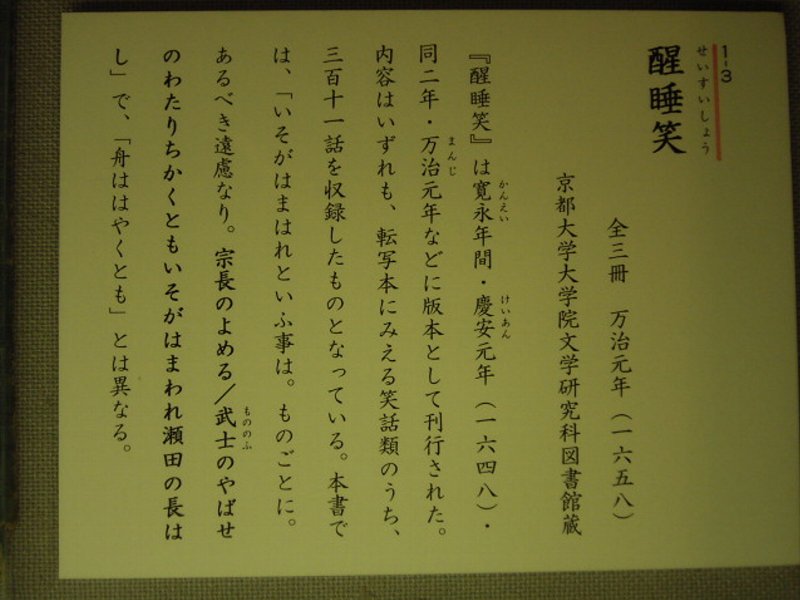 1-3
せいすいしょう
醒睡笑
全三冊 万治元年(一六五八)
京都大学大学院文学研究科図書館蔵
かんえい けいあん
『醒睡笑』は寛永年間・慶安元年(一六四八)・
まんじ
同二年・万治元年などに版本として刊行された。
内容はいずれも、転写本にみえる笑話類のうち、
三百十一話を収録したものとなっている。本書で
は、「いそがはまはれといふ事は。ものごとに。
あるべき遠慮なり。宗長のよめる/武士のやばせ
もののふ
のわたりちかくともいそがはまわれ瀬田の長は
し」で、「舟ははやくとも」とは異なる。